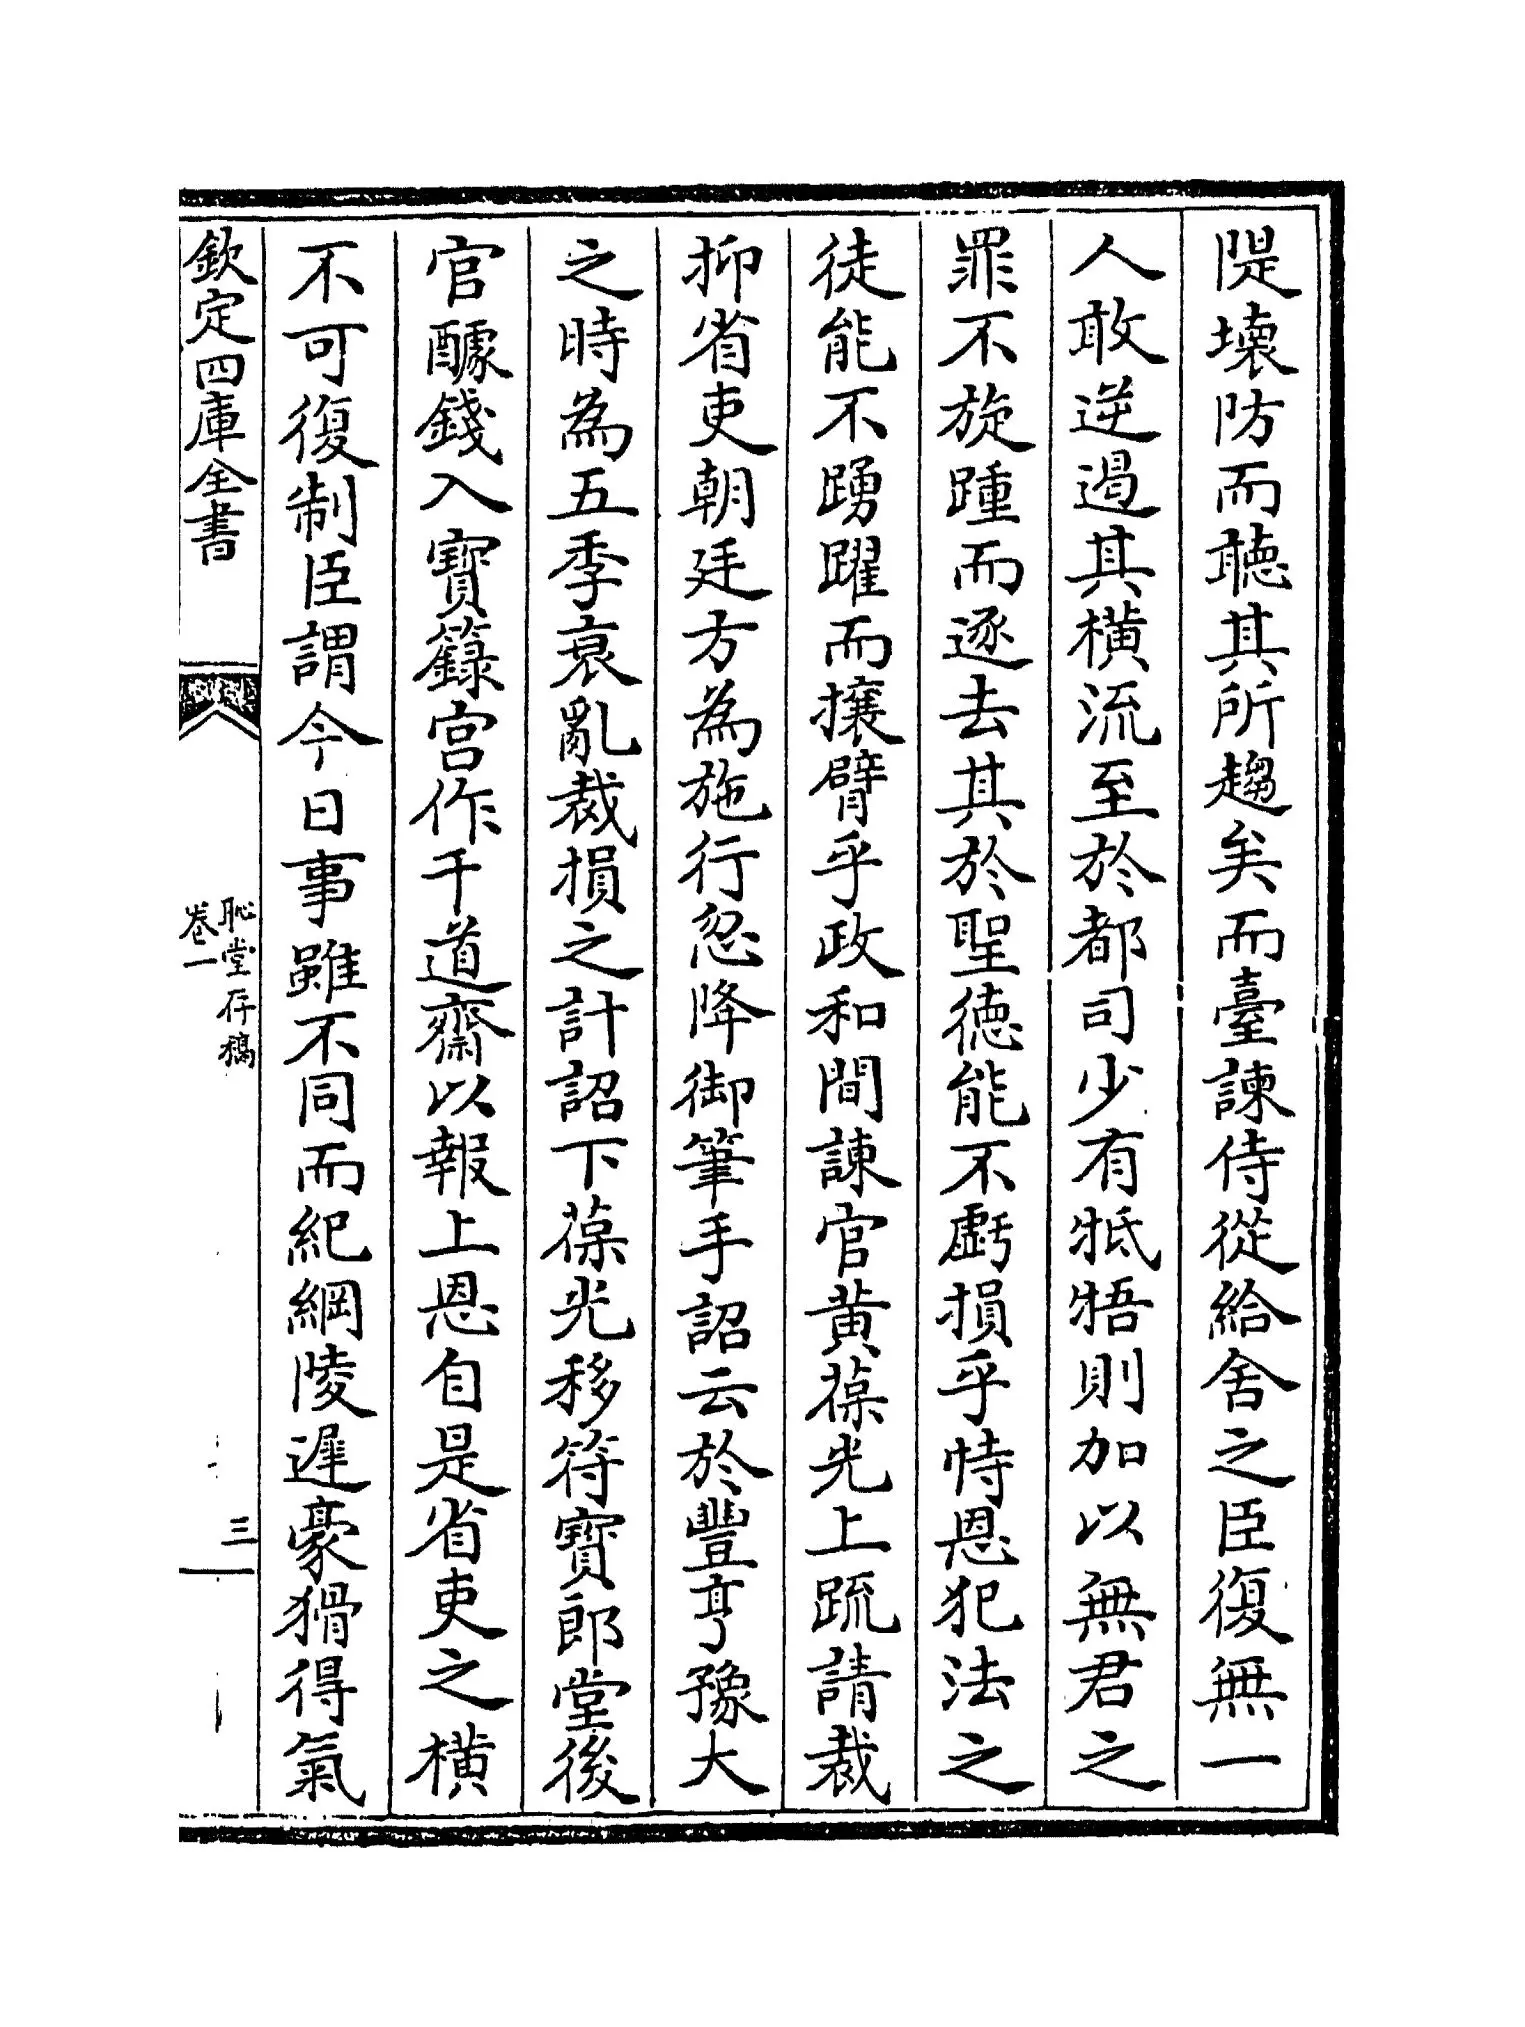 隄壞防而聽其所趨矣而臺諫侍從給舍之臣復無一
人敢逆遏其橫流至於都司少有牴牾則加以無君之
罪不旋踵而逐去其於聖德能不虧損乎恃恩犯法之
徒能不踴躍而攘臂乎政和間諫官黄葆光上疏請裁
抑省吏朝廷方為施行忽降御筆手詔云於豐亨豫大
之時為五季衰亂裁損之計詔下葆光移符寶郎堂後
官醵錢入寶籙宫作千道齋以報上恩自是省吏之橫
不可復制臣謂今日事雖不同而紀綱陵遲豪猾得氣
欽定四庫全書
恥堂存稿
卷一
三